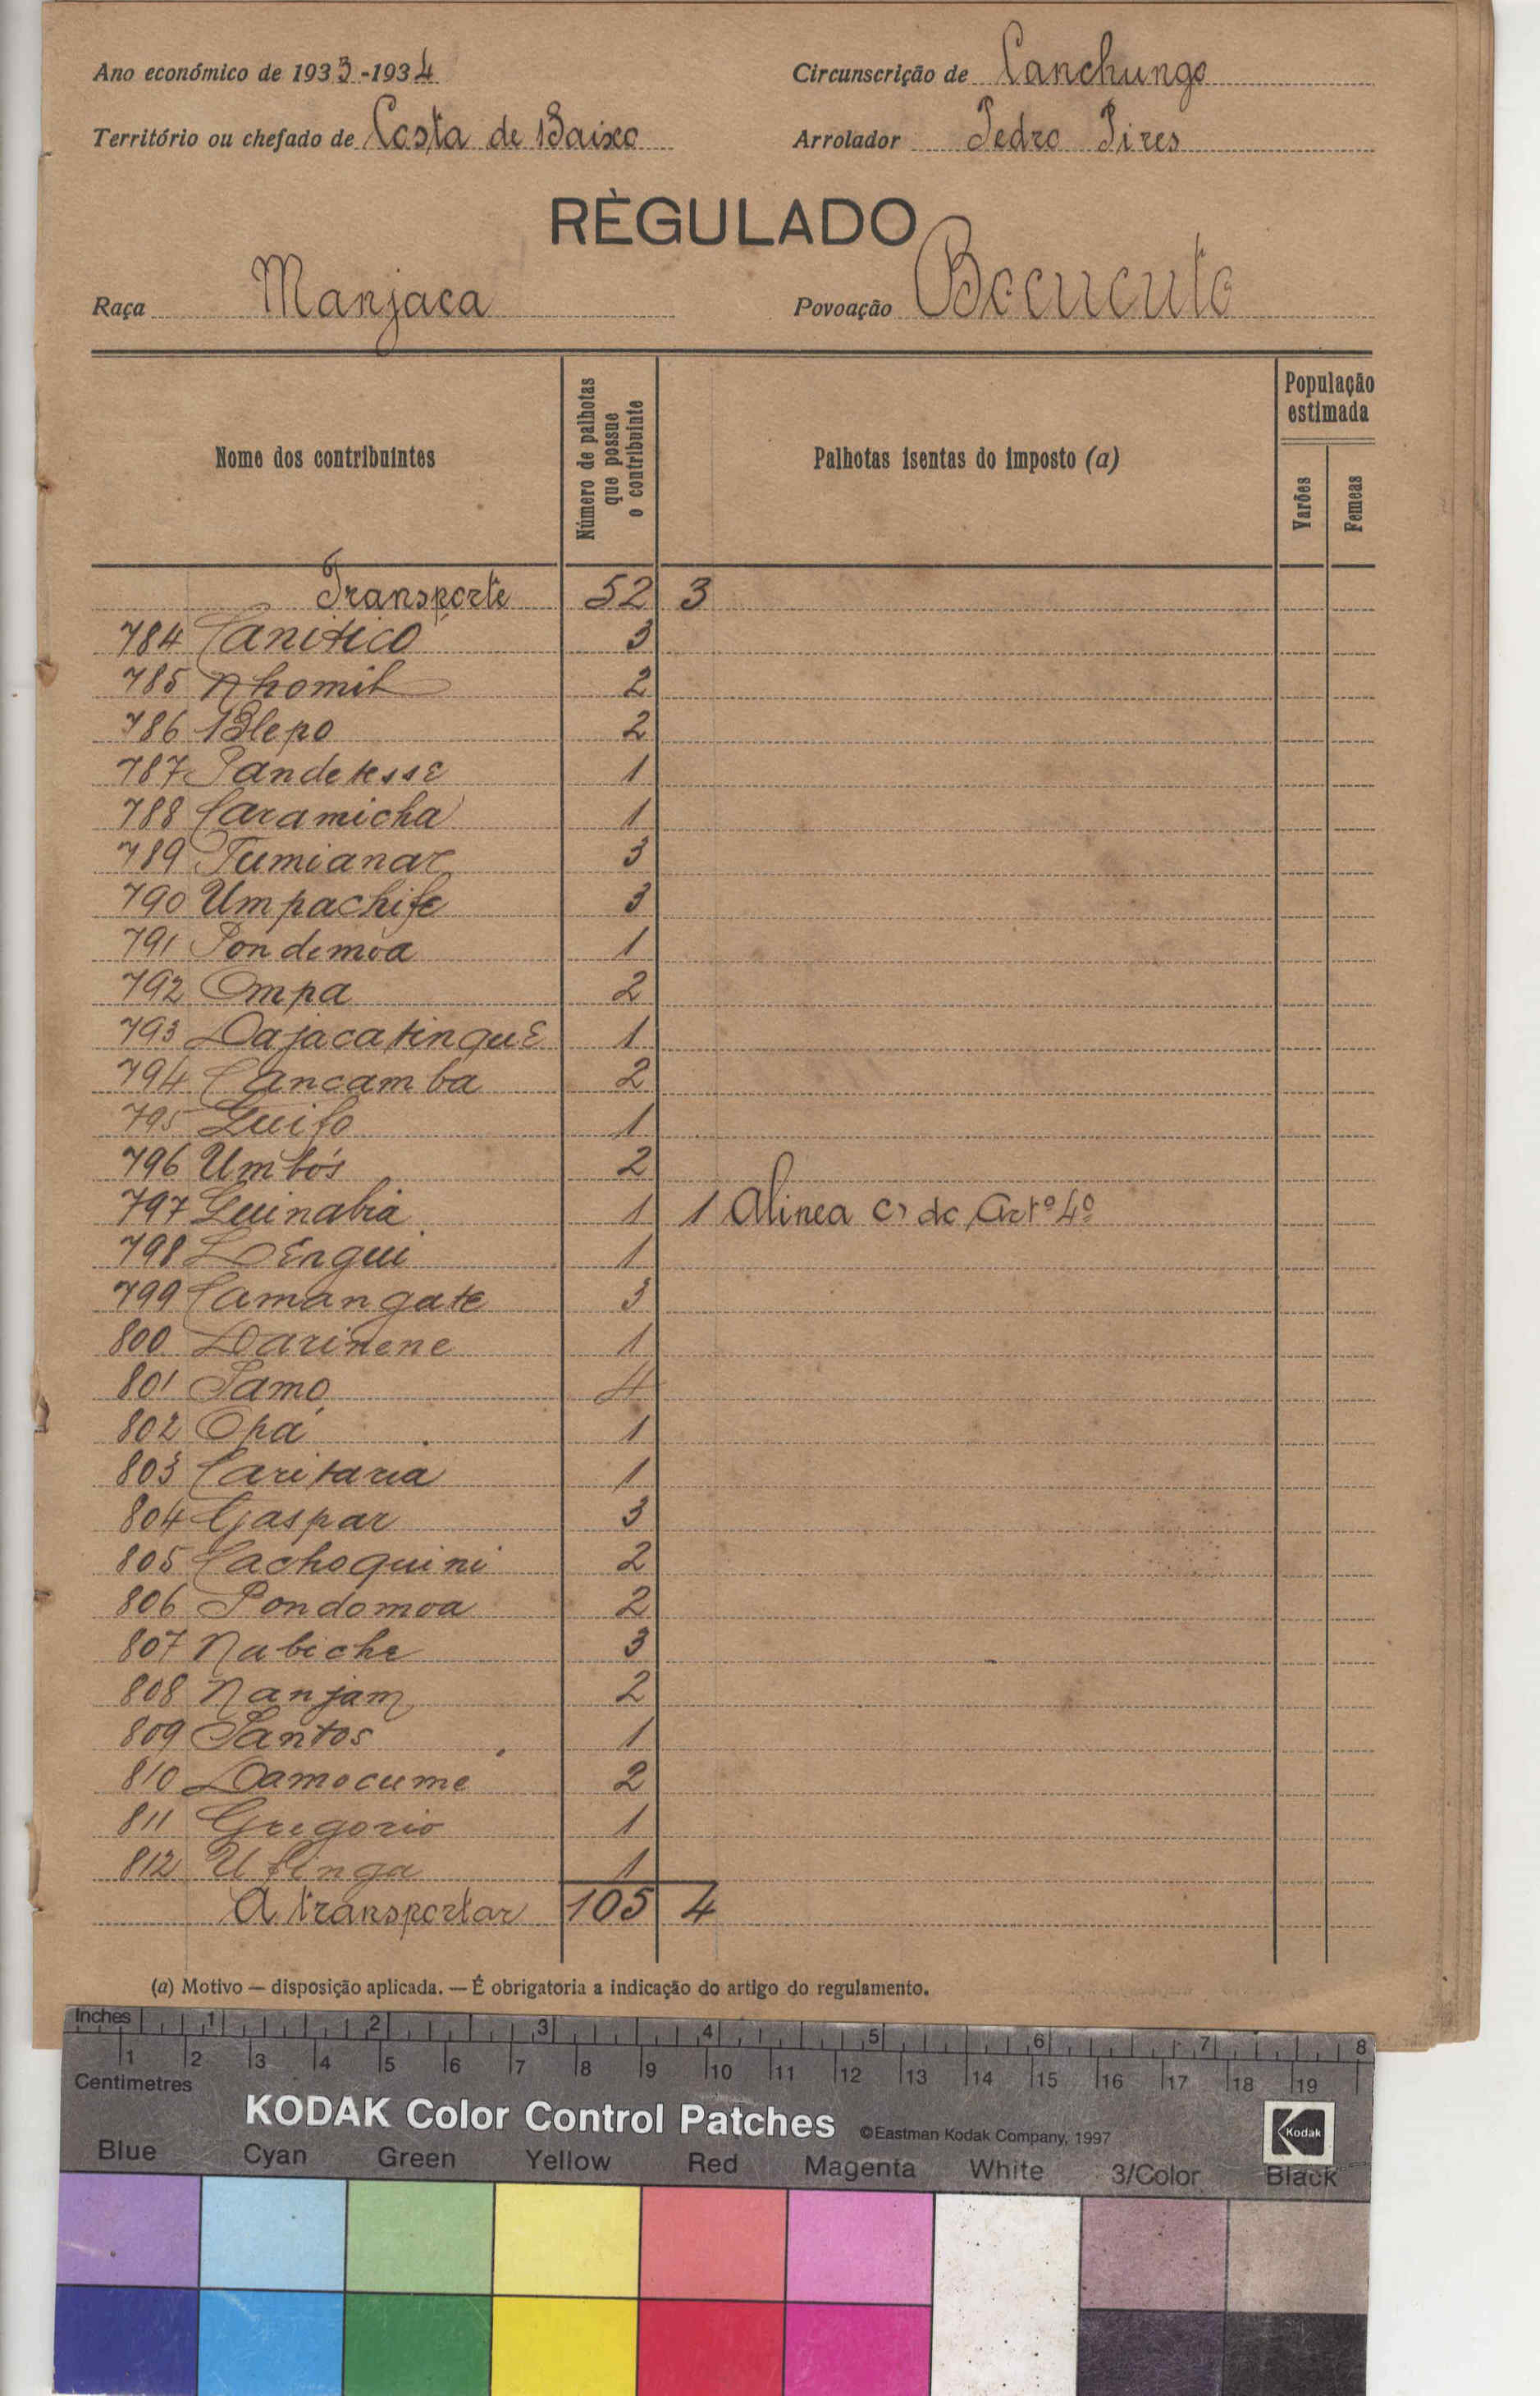 Ano económico de 1933-1934
Circunscrição de Canchungo
Território ou chefado de Costa de Baixo
Arrolador Pedro Pires
RÈGULADO
Raça Manjaca
Povoação Bocucuto
Nome dos contribuintes
Número de palhotas que possue o contribuinte
Palhotas isentas do imposto (a)
População estimada
Varões
Femeas
Transporte 52 3
784 Canitico 3
785 Nhomit 2
786 Blepo 2
787 Pandetesse 1
788 Caramicha 1
789 Tumianar 3
790 Umpachife 3
791 Pondemoa 1
792 Ompa 2
793 Dajacatinque 1
794 Cancamba 2
795 Guifo 1
796 Umbós 2
797 Guinabia 1 1 Alinea c) do Artº 4º
798 Dengui 1
799 Camangate 3
800 Darinene 1
801 Samo 4
802 Opá 1
803 Caritaria 1
804 Gaspar 3
805 Cachoquini 2
806 Pondomoa 2
807 Nabiche 3
808 Nanjam 2
809 Santos 1
810 Damocume 2
811 Gregorio 1
812 Ufinga 1
A transportar 105 4
(a) Motivo — disposição aplicada. — É obrigatoria a indicação do artigo do regulamento.
Inches 1 2 3 4 5 6 7 8
1 2 3 4 5 6 7 8 9 10 11 12 13 14 15 16 17 18 19
Centimetres
KODAK Color Control Patches ©Eastman Kodak Company, 1997 Kodak
Blue Cyan Green Yellow Red Magenta White 3/Color Black